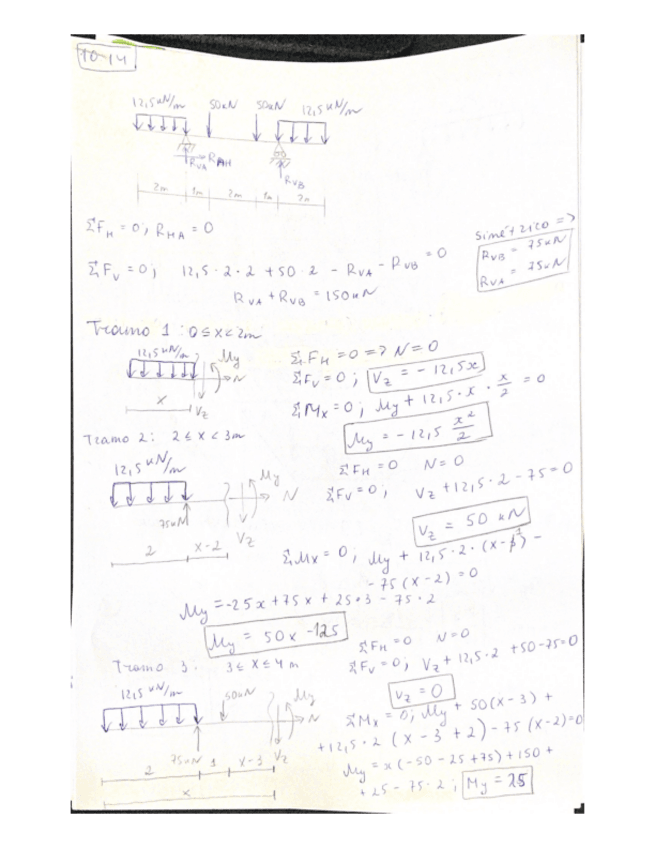 TO-14
12,5 kN/m 50kN 50kN 12,5 kN/m
R_VA R_AH R_VB
2m 1m 2m 1m 2m
ΣF_H = 0; R_HA = 0
ΣF_V = 0; 12,5·2·2 + 50·2 - R_VA - R_VB = 0
R_VA + R_VB = 150kN
simétrico =>
R_VB = 75kN
R_VA = 75kN
Tramo 1: 0≤x<2m
12,5kN/m My N
x Vz
ΣF_H = 0 => N = 0
ΣF_V = 0; Vz = -12,5x
ΣMx = 0; My + 12,5·x·x/2 = 0
My = -12,5 x²/2
Tramo 2: 2≤x<3m
12,5 kN/m My N
75kN Vz
2 x-2
ΣF_H = 0 N = 0
ΣF_V = 0; Vz + 12,5·2 - 75 = 0
Vz = 50 kN
ΣMx = 0; My + 12,5·2·(x-1) -
-75(x-2) = 0
My = -25x + 75x + 25·3 - 75·2
My = 50x - 125
Tramo 3. 3≤x≤4m
12,5 kN/m 50kN My N
75kN Vz
2 1 x-3
x
ΣF_H = 0 N = 0
ΣF_V = 0; Vz + 12,5·2 + 50 - 75 = 0
Vz = 0
ΣMx = 0; My + 50(x-3) +
+12,5·2(x-3+2) - 75(x-2) = 0
My = x(-50-25+75) + 150 +
+25 - 75·2; My = 25